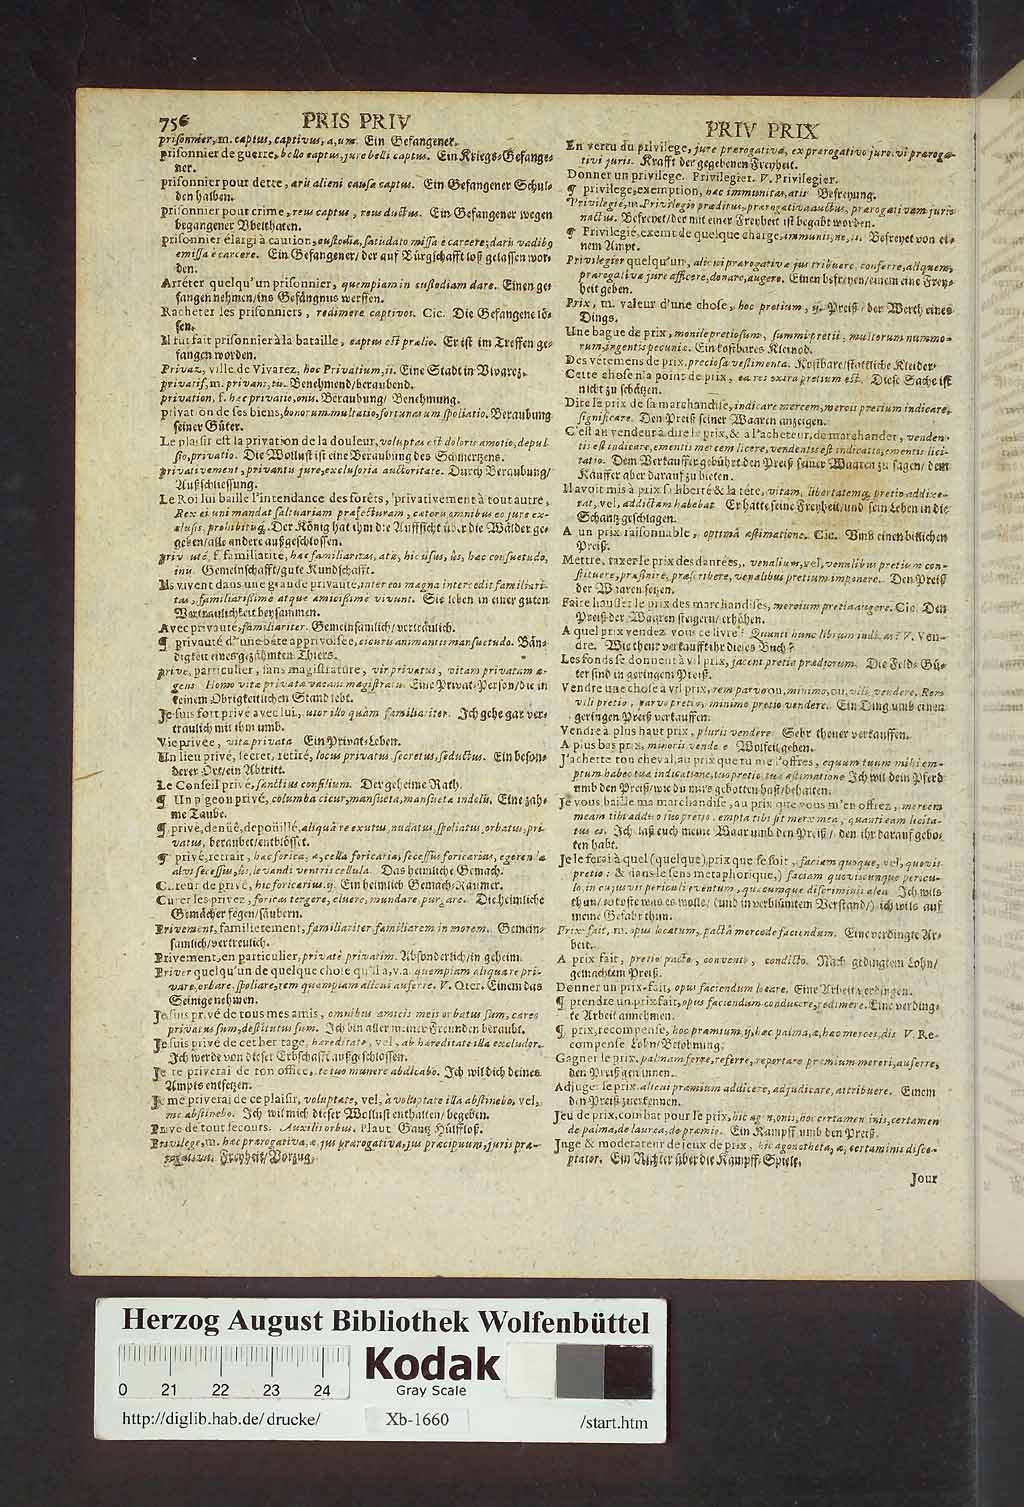 756 PRIS PRIV
prisonnier, m. captus, captivus, a, um. Ein Gefangener.
prisonnier de guerre, bello captus, jure belli captus. Ein Kriegs-Gefange-
ner.
prisonnier pour dette, æris alieni causa captus. Ein Gefangener Schul-
den halben.
prisonnier pour crime, reus captus, reus ductus. Ein Gefangener wegen
begangener Ubelthaten.
prisonnier élargi à caution, custodia, satisdato missus è carcere; datis vadibus
emissus è carcere. Ein Gefangener/ der auf Bürgschafft loß gelassen wor-
den.
Arrêter quelqu'un prisonnier, quempiam in custodiam dare. Einen ge-
fangen nehmen/ins Gefängnus werffen.
Racheter les prisonniers, redimere captivos. Cic. Die Gefangene lö-
sen.
Il fut fait prisonnier à la bataille, captus est prælio. Er ist im Treffen ge-
fangen worden.
Privaz, ville de Vivarez, hoc Privatium, ii. Eine Stadt in Vivarez.
privatif, m. privans, tis. Benehmend/beraubend.
privation, f. hæc privatio, onis. Beraubung/ Benehmung.
privation de ses biens, bonorum multatio, fortunarum spoliatio. Beraubung
seiner Güter.
Le plaisir est la privation de la douleur, voluptas est doloris amotio, depul-
sio, privatio. Die Wollust ist eine Beraubung des Schmertzens.
privativement, privantis jure, exclusoria auctoritate. Durch Beraubung/
Außschliessung.
Le Roi lui baille l'intendance des forêts, privativement à tout autre,
Rex ei uni mandat saltuariam præfecturam, cæteris omnibus eo jure ex-
clusis, prohibitisq;. Der König hat ihm die Auffsicht über die Wälder ge-
geben/alle andere außgeschlossen.
privauté, f. familiarité, hæc familiaritas, atis, hic usus, ûs, hæc consuetudo,
inis. Gemeinschafft/gute Kundschafft.
Ils vivent dans une grande privauté, inter eos magna intercedit familiari-
tas, familiarissimè atque amicissimè vivunt. Sie leben in einer guten
Vertraulichkeit beysammen.
Avec privauté, familiariter. Gemeinsamlich/vertraulich.
¶ privauté d'une bête apprivoisée, cicuris animantis mansuetudo. Bän-
digkeit eines gezähmten Thiers.
privé, particulier, sans magistrature, vir privatus, vitam privatam a-
gens. Homo vitæ privatæ vacans magistratu. Eine Privat-Person/die in
keinem Obrigkeitlichen Stand lebt.
Je suis fort privé avec lui, utor illo quàm familiariter. Ich gehe gar ver-
traulich mit ihm umb.
Vie privée, vita privata. Ein Privat-Leben.
Un lieu privé, secret, retiré, locus privatus, secretus, seductus. Ein beson-
derer Ort/ein Abtritt.
Le Conseil privé, sanctius consilium. Der geheime Rath.
¶ Un pigeon privé, columba cicur, mansueta, mansuetæ indolis. Eine zah-
me Taube.
¶ privé, denüé, depoüillé, aliquâ re exutus, nudatus, spoliatus, orbatus, pri-
vatus, beraubet/entblösset.
¶ privé, retrait, hæc forica, æ, cella foricaria, secessus foricarius, egerendæ
alvi secessus, ûs, levandi ventris cellula. Das heimliche Gemach.
Cureur de privé, hic foricarius, ij. Ein heimlich Gemach-Raumer.
Curer les privez, foricas tergere, eluere, mundare, purgare. Die heimliche
Gemächer fegen/säubern.
Privément, familierement, familiariter familiarem in morem. Gemein-
samlich/vertreulich.
Privement, en particulier, privatè privatim. Absonderlich/in geheim.
Priver quelqu'un de quelque chose qu'il a, v. a. quempiam aliquâ re pri-
vare, orbare, spoliare, rem quampiam alicui auferre. V. Oter. Einem das
Seinige nehmen.
Je suis privé de tous mes amis, omnibus amicis meis orbatus sum, careo
privatus sum, destitutus sum. Ich bin aller meiner Freunden beraubt.
Je suis privé de cet heritage, hæreditate, vel, ab hæreditate illa excludor.
Ich werde von dieser Erbschafft außgeschlossen.
Je te priverai de ton office, te tuo munere abdicabo. Ich wil dich deines
Ampts entsetzen.
Je me priverai de ce plaisir, voluptate, vel, à voluptate illa abstinebo, vel,
me abstinebo. Ich wil mich dieser Wollust enthalten/ begeben.
Privé de tout secours. Auxilii orbus. Plaut. Gantz Hülffloß.
Privilege, m. hæc prærogativa, æ, jus prærogativa, jus præcipuum, juris præ-
rogativa. Freyheit/Vorzug.
PRIV PRIX
En vertu du privilege, jure prærogativæ, ex prærogativo jure, vi præroga-
tivi juris. Krafft der gegebenen Freyheit.
Donner un privilege. Privilegier. V. Privilegier.
¶ privilege, exemption, hæc immunitas, atis. Befreyung.
Privilegié, m. Privilegio præditus, prærogativa auctus, prærogativam juris
nactus. Befreyet/der mit einer Freyheit ist begabt worden.
¶ Privilegié, exemt de quelque charge, immunis, ne, is. Befreyet von ei-
nem Ampt.
Privilegier quelqu'un, alicui prærogativæ jus tribuere, conferre, aliquem,
prærogativæ jure afficere, donare, augere. Einen befreyen/einem eine Frey-
heit geben.
Prix, m. valeur d'une chose, hoc pretium, ij. Preiß/ der Werth eines
Dings.
Une bague de prix, monile pretiosum, summi pretii, multorum nummo-
rum, ingentis pecuniæ. Ein kostbares Kleinod.
Des vêtemens de prix, preciosa vestimenta. Kostbare/stattliche Kleider.
Cette chose n'a point de prix, ea res extra pretium est. Diese Sache ist
nicht zu schätzen.
Dire le prix de sa marchandise, indicare mercem, mercis precium indicare,
significare. Den Preiß seiner Waaren anzeigen.
C'est au vendeur à dire le prix, & à l'acheteur, de marchander, venden-
tis est indicare, ementis mercem licere, vendentis est indicatio, ementis lici-
tatio. Dem Verkauffer gebührt den Preiß seiner Waaren zu sagen/ dem
Kauffer aber darauf zu bieten.
Il avoit mis à prix sa liberté & sa tête, vitam, libertatemq; pretio addixe-
rat, vel, addictam habebat. Er hatte seine Freyheit/und sein Leben in die
Schantz geschlagen.
A un prix raisonnable, optimâ æstimatione. Cic. Umb einen billichen
Preiß.
Mettre, taxer le prix des danrées, venalium, vel, venalibus pretium con-
stituere, præfinire, præscribere, venalibus pretium imponere. Den Preiß
der Waaren setzen.
Faire hausser le prix des marchandises, mercium pretia augere. Cic. Den
Preiß der Waaren steigern/erhöhen.
A quel prix vendez vous ce livre? Quanti hunc librum indicas? V. Ven-
dre. Wie theur verkaufft ihr dieses Buch?
Les fonds se donnent à vil prix, jacent pretia prædiorum. Die Feld-Gü-
ter sind in geringem Preiß.
Vendre une chose à vil prix, rem parvo ou, minimo, ou, vili, vendere. Rem
vili pretio, parvo pretio, minimo pretio vendere. Ein Ding umb einen
geringen Preiß verkauffen.
Vendre à plus haut prix, pluris vendere. Sehr theuer verkauffen.
A plus bas prix, minoris vendere. Wolfeil geben.
J'achette ton cheval, au prix que tu me l'offres, equum tuum mihi em-
ptum habeo tuâ indicatione, tuo pretio, tuâ æstimatione. Ich wil dein Pferd
umb den Preiß/wie du mirs gebotten hast/behalten.
Je vous baille ma marchandise, au prix que vous m'en offrez, mercem
meam tibi addico tuo pretio, empta tibi sit merx mea, quanti eam licita-
tus es. Ich laß euch meine Waar umb den Preiß/ den ihr darauf gebo-
ten habt.
Je le ferai à quel (quelque) prix que se soit, faciam quoque, vel, quovis
pretio: & dans le sens metaphorique,) faciam quoviscunque pericu-
lo, in cujusvis periculi eventum, quacumque discriminis alea. Ich wils
thun/ es koste was es wolle/ (und in verblümtem Verstand/) ich wils auf
meine Gefahr thun.
Prix-fait, m. opus locatum, pactâ mercede faciendum. Eine verdingte Ar-
beit.
A prix fait, pretio pacto, convento, condicto. Nach gedingtem Lohn/
gemachtem Preiß.
Donner un prix-fait, opus faciendum locare. Eine Arbeit verdingen.
¶ prendre un prix fait, opus faciendum conducere, redimere. Eine verding-
te Arbeit annehmen.
¶ prix, recompense, hoc præmium, ij, hæc palma, æ, hæc merces, dis. V. Re-
compense. Lohn/ Belohnung.
Gagner le prix, palmam ferre, referre, reportare præmium mereri, auferre,
den Preiß gewinnen.
Adjuger le prix, alicui præmium addicere, adjudicare, attribuere. Einem
den Preiß zuerkennen.
Jeu de prix, combat pour le prix, hic agon, onis, hoc certamen, inis, certamen
de palma, de laurea, de præmio. Ein Kampff umb den Preiß.
Juge & moderateur de jeux de prix, hic agonotheta, æ, certaminis disce-
ptator. Ein Richter über die Kampff-Spiele.
Jour
Herzog August Bibliothek Wolfenbüttel
Kodak
Gray Scale
0 21 22 23 24
http://diglib.hab.de/drucke/ Xb-1660 /start.htm